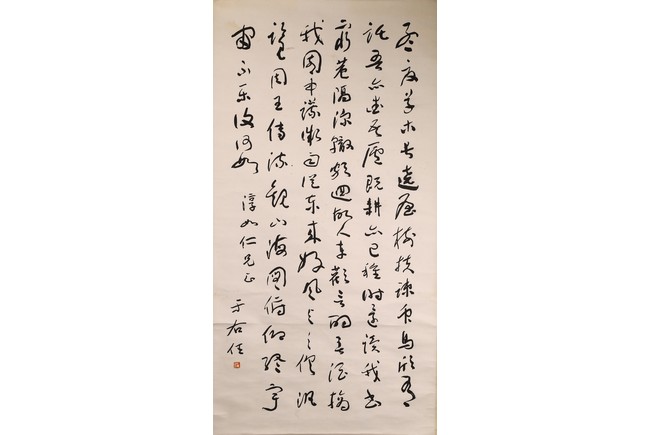 孟夏草木長遶屋樹扶疎眾鳥欣有
託吾亦愛吾廬既耕亦已種時還讀我書
窮巷隔深轍頗迴故人車歡言酌春酒摘
我園中蔬微雨從東來好風與之俱汎
覽周王傳流觀山海圖俯仰終宇
宙不樂復何如
淳如仁兄正
于右任